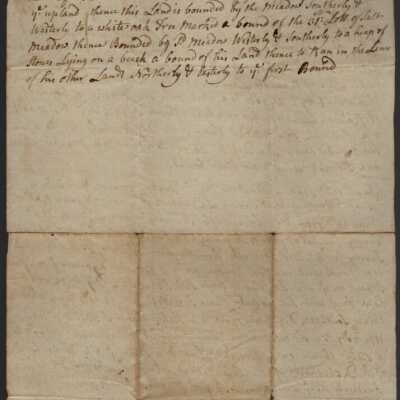 yᵉ upland thence this Land is bounded by the meadow Southerly &
Westerly to a white oak Tree Markt a bound of the 31st Lott of Salt
meadow thence Bounded by sd meadow Westerly & Southerly to a heap of
Stones Lying on a beach a bound of his Land thence to Run in the Line
of his other Land Northerly & Easterly to yᵉ first Bound